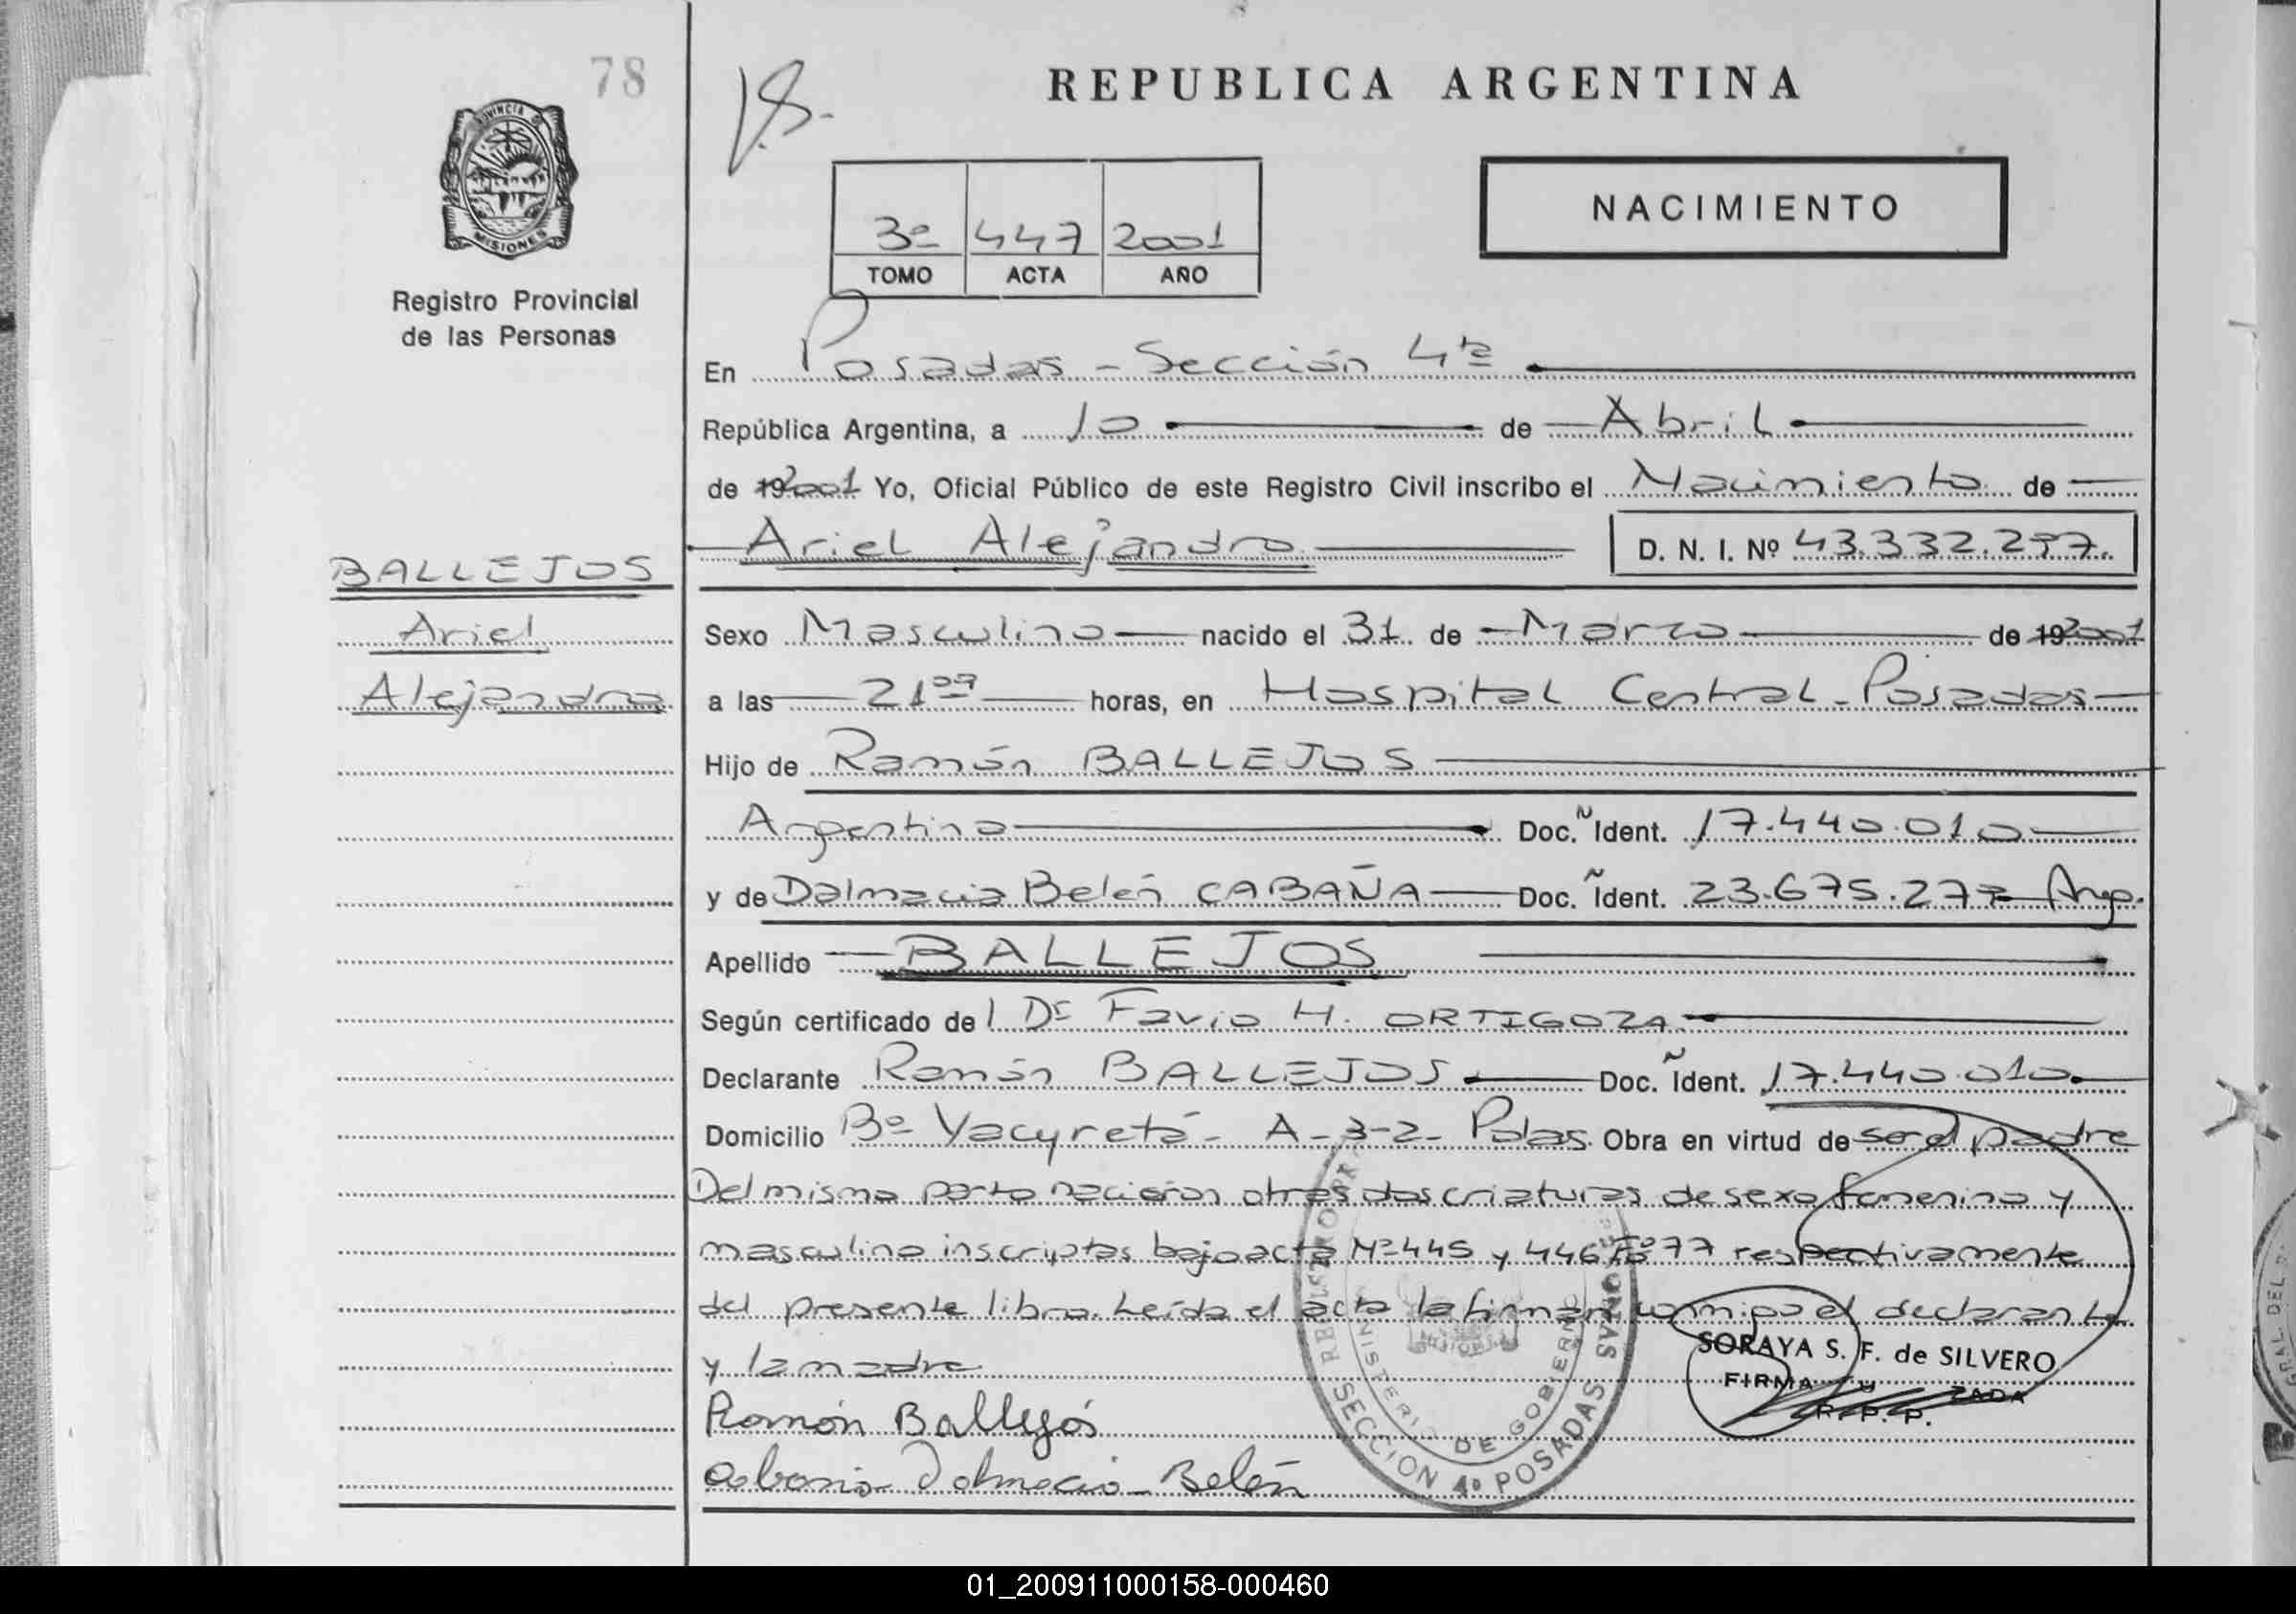 78
V.S.
REPUBLICA ARGENTINA
PROVINCIA DE
MISIONES
3º 447 2001
TOMO ACTA AÑO
NACIMIENTO
Registro Provincial
de las Personas
En Posadas - Sección 4ta
República Argentina, a 10 de Abril
de 19 2001 Yo, Oficial Público de este Registro Civil inscribo el Nacimiento de
Ariel Alejandro D. N. I. Nº 43.332.297.
BALLEJOS
Ariel
Alejandro
Sexo Masculino nacido el 31 de Marzo de 19 2001
a las 21 09 horas, en Hospital Central - Posadas
Hijo de Ramón BALLEJOS
Argentino Doc. Ñ Ident. 17.440.010
y de Dalmacia Belén CABAÑA Doc. Ñ Ident. 23.675.277 Arg.
Apellido BALLEJOS
Según certificado del Dr Favio H. ORTIGOZA
Declarante Ramón BALLEJOS Doc. Ñ Ident. 17.440.010
Domicilio Bº Yacyretá - A-3-2- Pdas. Obra en virtud de ser el padre
Del mismo parto nacieron otras dos criaturas de sexo femenino y
masculino inscriptas bajo acta Nº 445 y 446 Fº 77 respectivamente
del presente libro. Leída el acta la firman conmigo el declarante
y la madre
SORAYA S. F. de SILVERO
FIRMA ZADA
R. P. P.
Ramón Ballejós
Dalmacia Belén
MINISTERIO DE GOBIERNO
SECCION 4º POSADAS
MISIONES
RAL DEL
01_200911000158-000460